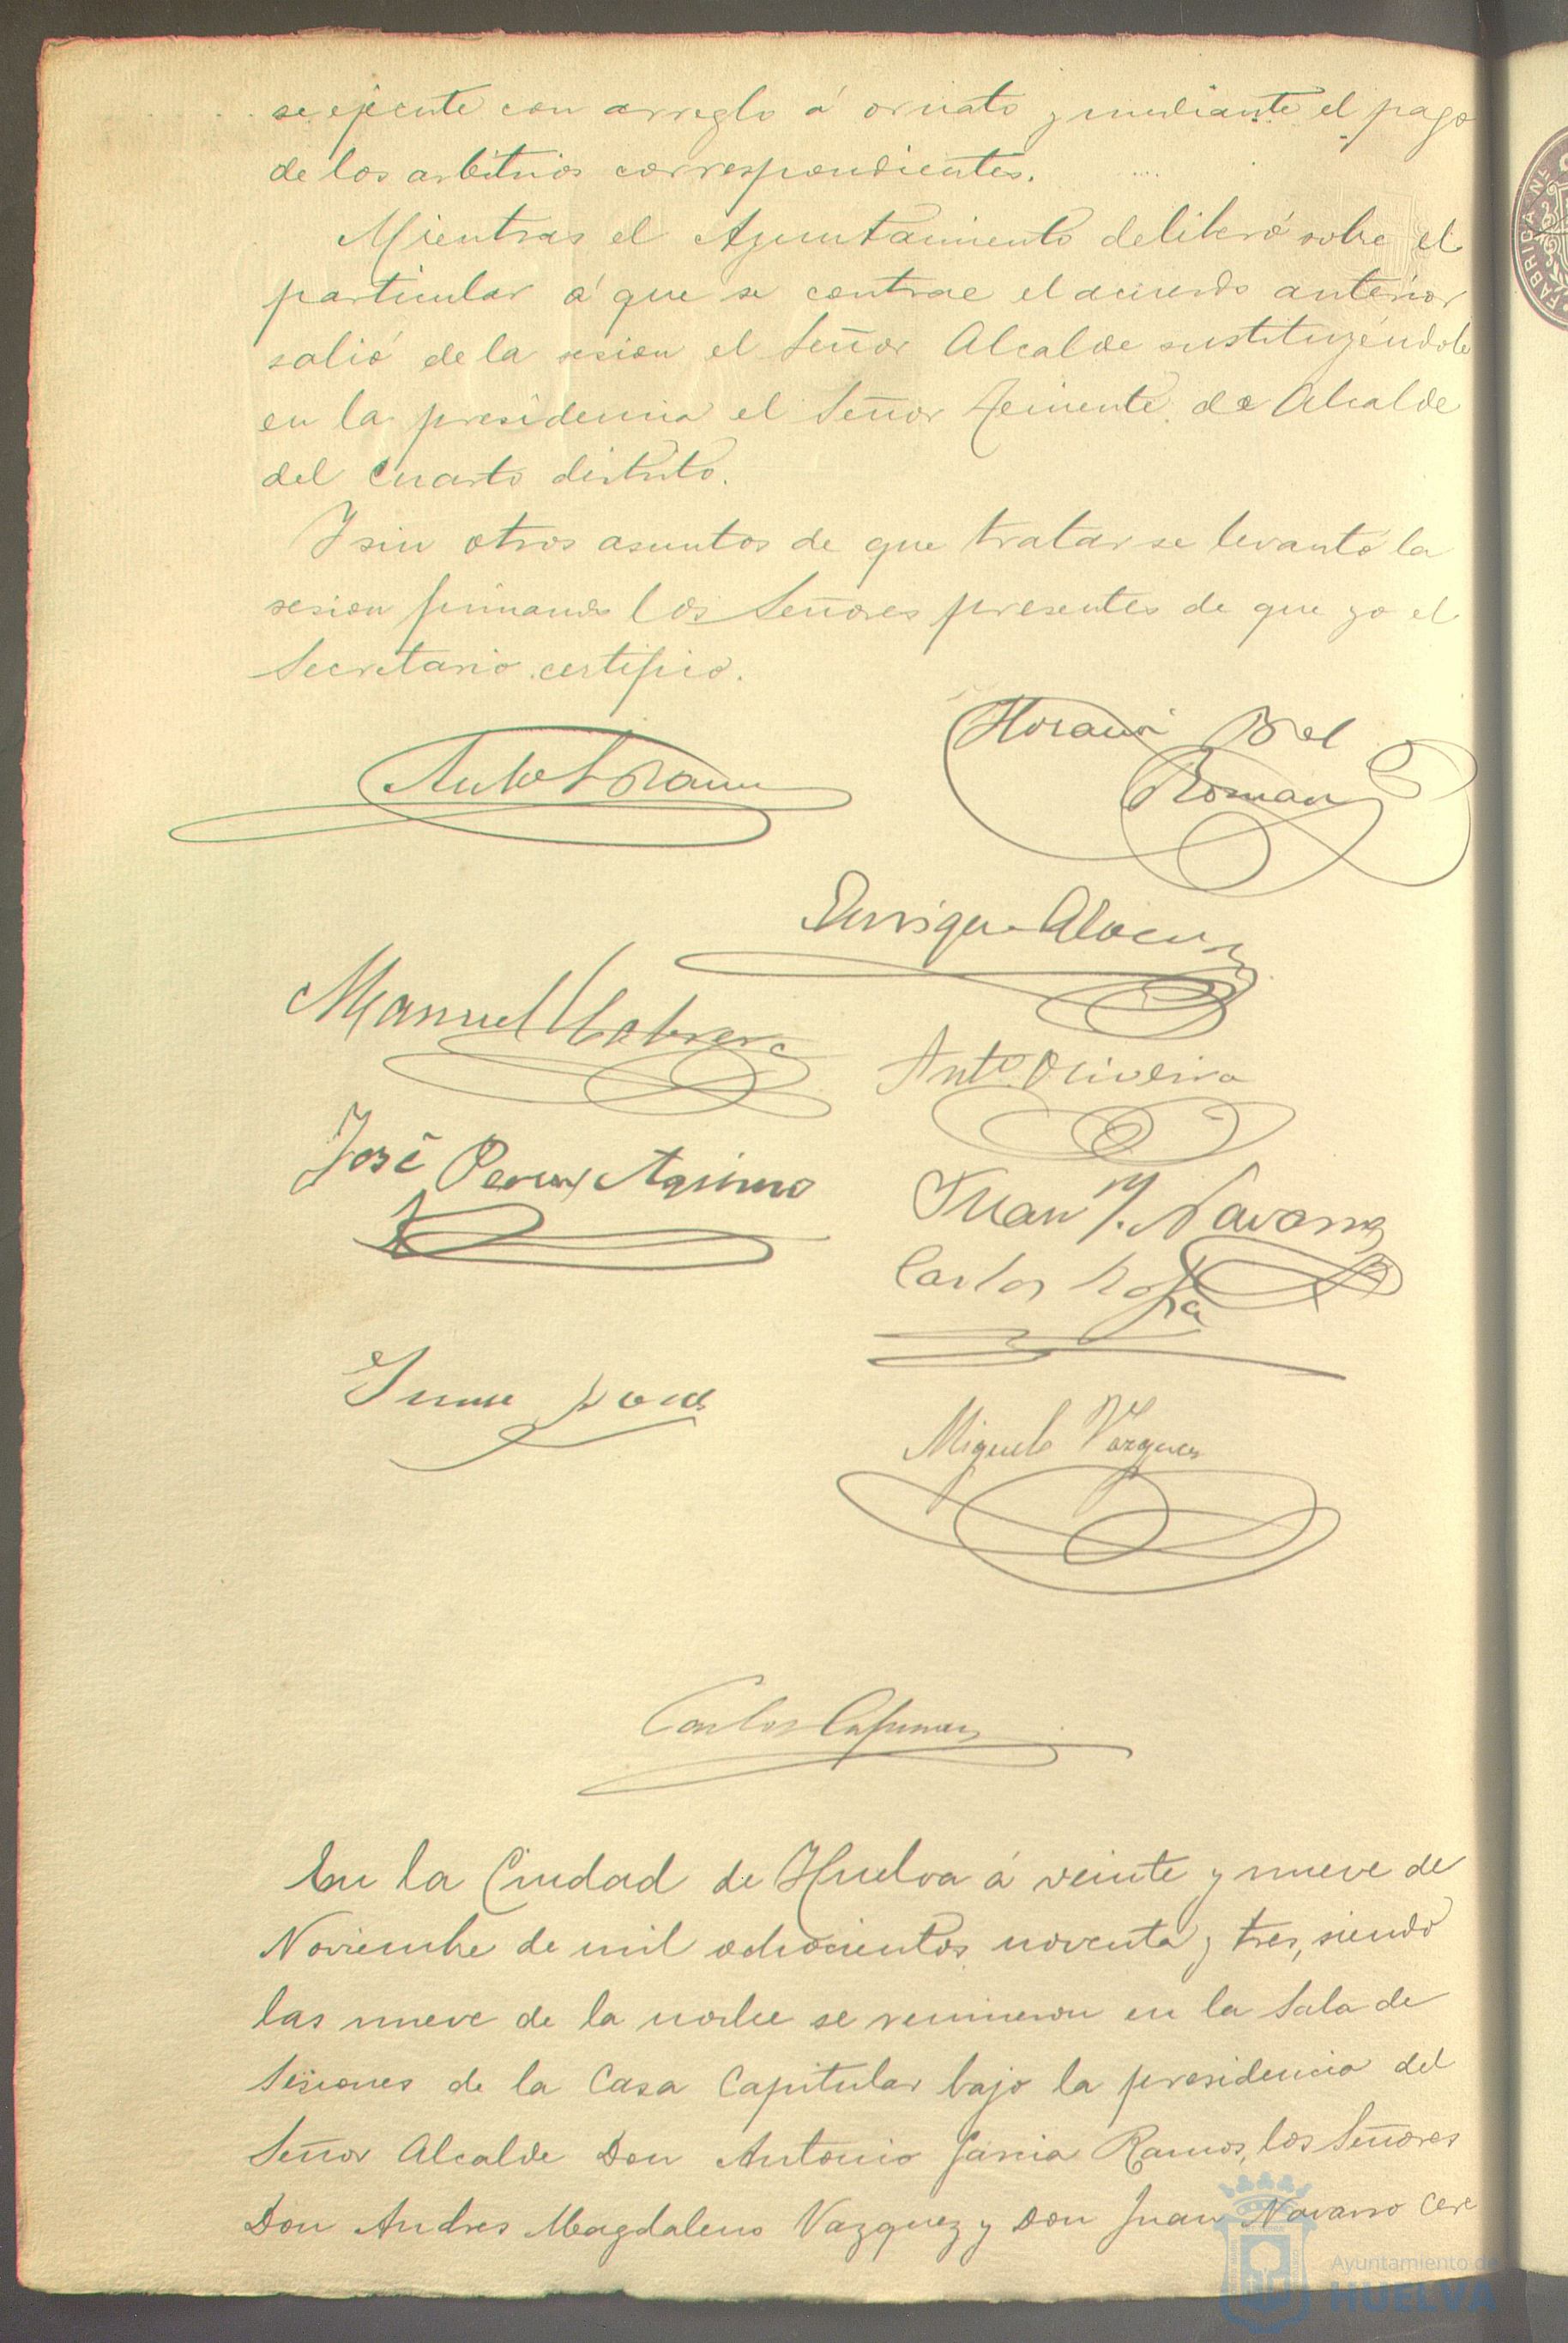 se ejecute con arreglo á ornato y mediante el pago
de los arbitrios correspondientes.
Mientras el Ayuntamiento deliberó sobre el
particular á que se contrae el acuerdo anterior
salió de la sesion el Señor Alcalde sustituyéndole
en la presidencia el Señor Teniente de Alcalde
del Cuarto distrito.
Y sin otros asuntos de que tratar se levantó la
sesion firmando los Señores presentes de que yo el
Secretario certifico.
Horacio Bel
Roman
Enrique
Manuel Cabrera
Antº Oliveira
José Perez
Juan M. Navarro
Carlos
Miguel Vazquez
Carlos
En la Ciudad de Huelva á veinte y nueve de
Noviembre de mil ochocientos noventa y tres, siendo
las nueve de la noche se reunieron en la Sala de
Sesiones de la Casa Capitular bajo la presidencia del
Señor Alcalde Don Antonio Garcia Ramos, los Señores
Don Andres Magdaleno Vazquez y Don Juan Navarro Cere
FABRICA N
Ayuntamiento de
HUELVA